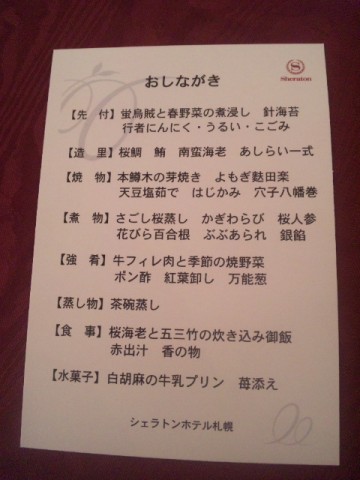 Sheraton
おしながき
【先　付】蛍烏賊と春野菜の煮浸し　針海苔
行者にんにく・うるい・こごみ
【造　里】桜鯛　鮪　南蛮海老　あしらい一式
【焼　物】本鱒木の芽焼き　よもぎ麩田楽
天豆塩茹で　はじかみ　穴子八幡巻
【煮　物】さごし桜蒸し　かぎわらび　桜人参
花びら百合根　ぶぶあられ　銀餡
【強　肴】牛フィレ肉と季節の焼野菜
ポン酢　紅葉卸し　万能葱
【蒸し物】茶碗蒸し
【食　事】桜海老と五三竹の炊き込み御飯
赤出汁　香の物
【水菓子】白胡麻の牛乳プリン　苺添え
シェラトンホテル札幌